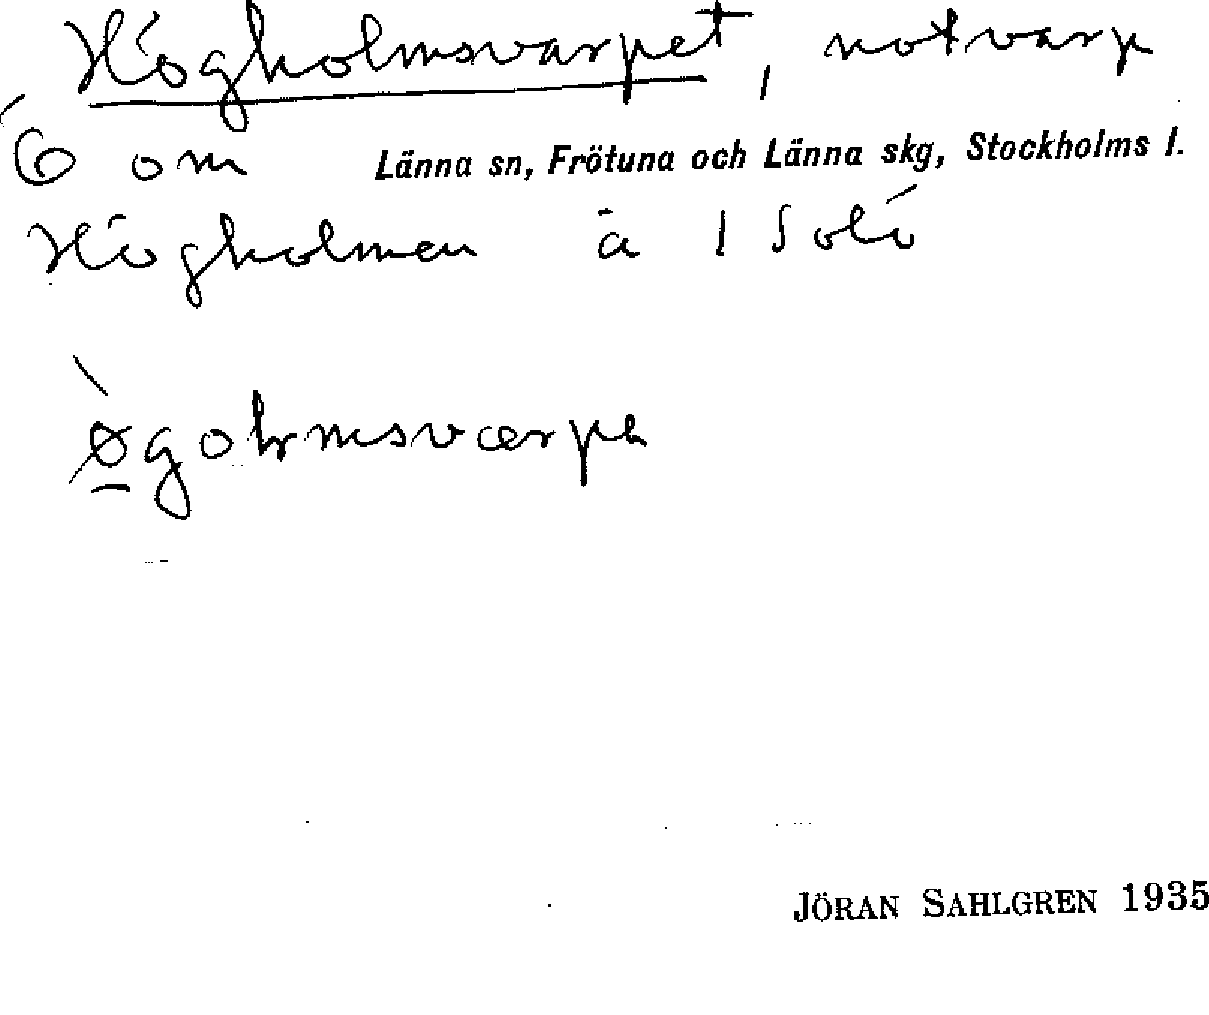 Högholmsvarpet, notvarp
Ö om
Länna sn, Frötuna och Länna skg, Stockholms l.
Högholmen å Isolö
øgohrmsværpe
JÖRAN SAHLGREN 1935